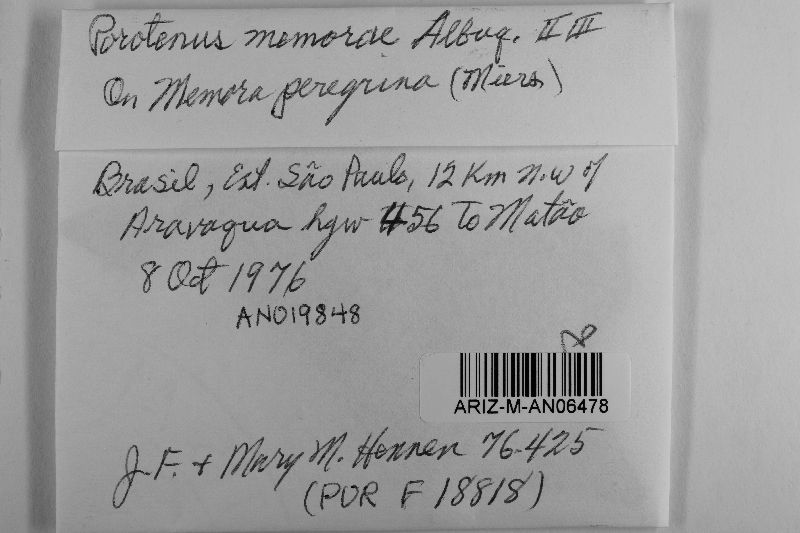 Porotenus memorae Albuq. II III
On Memora peregrina (Miers)
Brasil, Est. São Paulo, 12 Km N.W of
Aravaqua hgw 456 To Matão
8 Oct 1976
AN019848
ARIZ-M-AN06478
J.F. + Mary M. Hennen 76-425
(PUR F 18818)